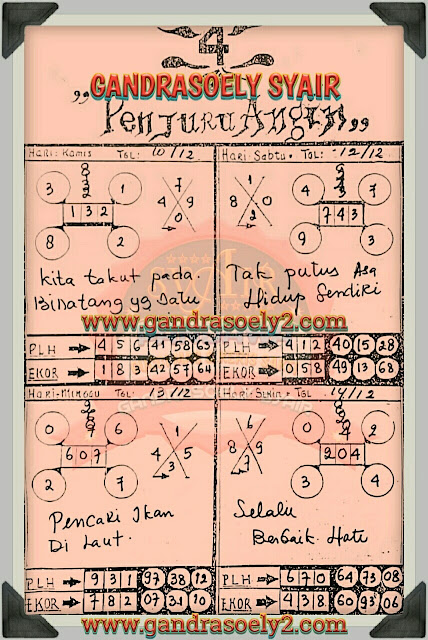 4
GANDRASOELY SYAIR
"Penjuru Angin"
Hari: Kamis TGL: 10/12
3 1
1 3 2
8 2
7
4 9
0
Kita takut pada
Binatang yg satu
Hari: Sabtu. TGL: 12/12
4 7
7 4 3
9 3
1
8 0
2
Tak putus Asa
Hidup Sendiri
www.gandrasoely2.com
PLH 4 5 6 41 58 63
EKOR 1 8 3 42 57 64
PLH 4 1 2 40 15 28
EKOR 0 5 8 49 13 68
Hari: Minggu TGL: 13/12
0 6
6 0 7
2 7
1
4 5
3
Pencari Ikan
Di Laut.
Hari: Senin TGL 14/12
6
8 9
7
0 2
2 0 4
3 4
Selalu
Berbaik Hati
PLH 9 3 1 97 38 12
EKOR 7 8 2 07 31 10
PLH 6 7 0 64 73 08
EKOR 4 3 8 60 93 06
www.gandrasoely2.com